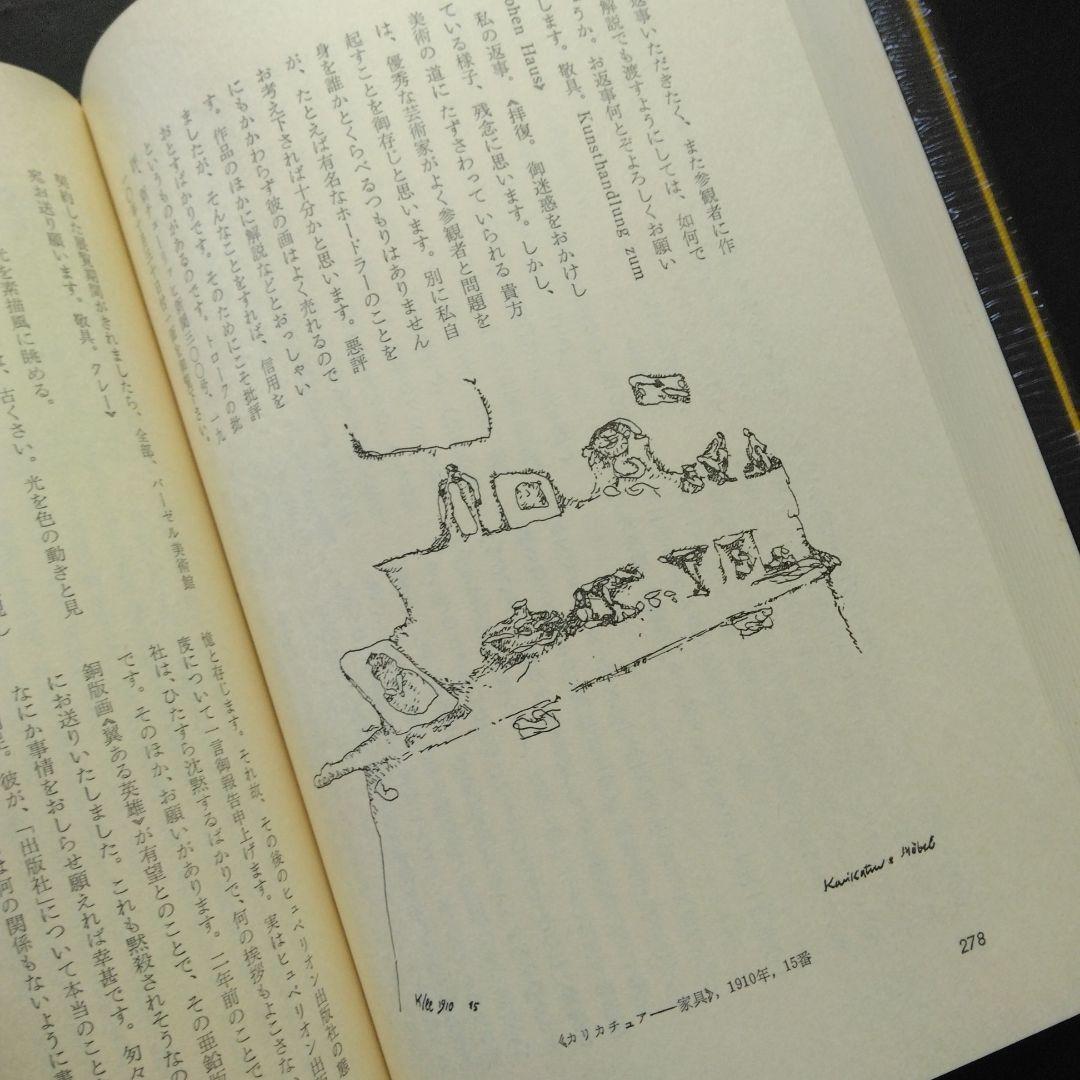 返事いただきたく、また参観者に作
解説でも渡すようにしては、如何で
ょうか。お返事何とぞよろしくお願い
します。敬具。Kunsthandlung zum
ohen Haus》
私の返事。《拝復。御迷惑をおかけし
ている様子、残念に思います。しかし、
美術の道にたずさわっていられる貴方
は、優秀な芸術家がよく参観者と問題を
起すことを御存じと思います。別に私自
身を誰かとくらべるつもりはありません
が、たとえば有名なホードラーのことを
お考え下されば十分かと思います。悪評
にもかかわらず彼の画はよく売れるので
す。作品のほかに解説などとおっしゃい
ましたが、そんなことをすれば、信用を
おとすばかりです。そのためにこそ批評
というものがあるのです。トローグの批
契約した展覧期間がきれましたら、全部、バーゼル美術館
宛お送り願います。敬具。クレー》
光を素描風に眺める。
は、古くさい。光を色の動きと見
惶と存じます。それ故、その後のヒュペリオン出版社の態
度について一言御報告申上げます。実はヒュペリオン出版
社は、ひたすら沈黙するばかりで、何の挨拶もよこさない
です。そのほか、お願いがあります。二年前のことで
銅版画《翼ある英雄》が有望とのことで、その亜鉛版
にお送りいたしました。これも黙殺されそうなの
なにか事情をおしらせ願えれば幸甚です。匆々
彼が、「出版社」について本当のこと
は何の関係もないように書
Klee 1910 15
Karikatur : Möbel
《カリカチュア──家具》, 1910年, 15番
278